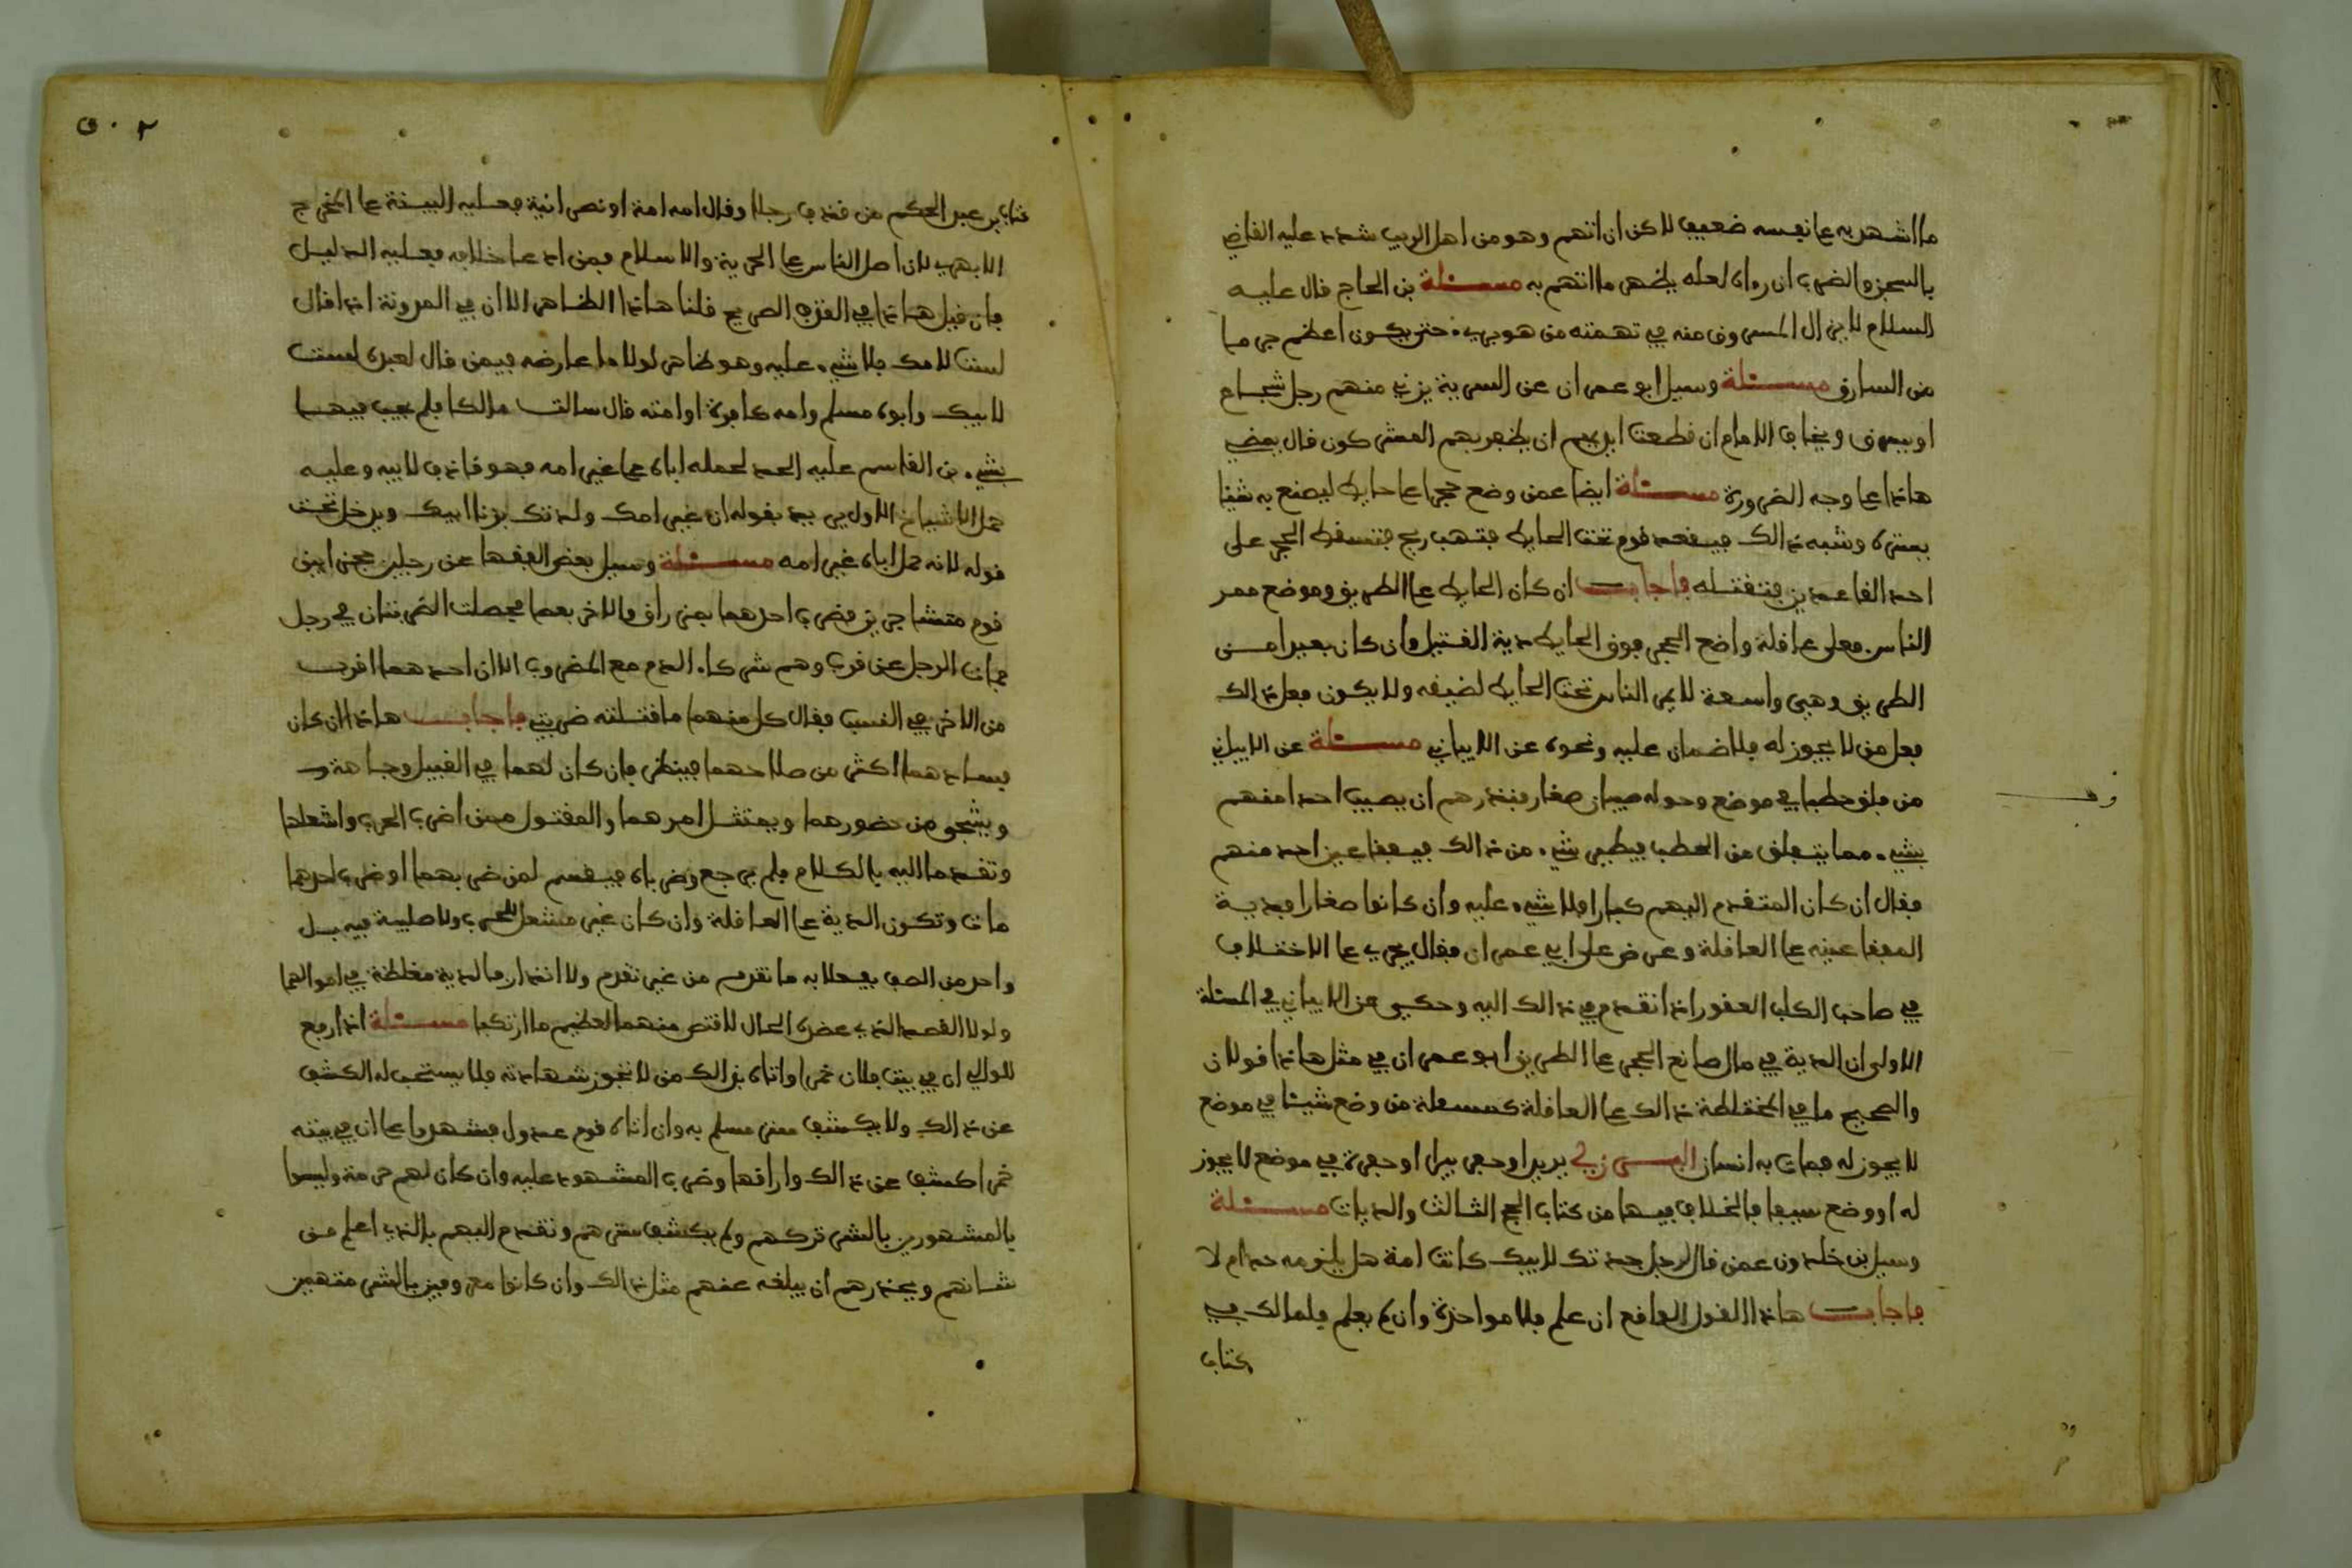 ما اشهر به على نفسه ضعيف لاكن ان اتهم وهو من اهل الريب شدد عليه القاضي
بالسجن والضرب ان رءاه لعله يظهر ما اتهم به مسئلة بن الحاج قال عليه
السلام لا يزال المسروق منه في تهمته من هو بريء حتى يكون اعظم جرما
من السارق مسئلة وسيل ابو عمران عن السرية يزني منهم رجل شجاع
او يسرق ويخاف الامام ان قطعت ايديهم ان يظفر بهم المشركون قال يمضي
هاذا على وجه الضرورة مسئلة ايضا عمن وضع حجرا على حايط ليصنع به شيئا
يستره وشبه ذالك فيقعد قوم تحت الحايط فتهب ريح فتسقط الحجر على
احد القاعدين فتقتله فاجاب ان كان الحايط على الطريق وموضع ممر
الناس فعلى عاقلة واضع الحجر فوق الحايط دية القتيل وان كان بعيدا من
الطريق وهي واسعة لا يمر الناس تحت الحايط لضيقه ولا يكون فعل ذالك
فعل من لا يجوز له فلا ضمان عليه ونحوه عن الابياني مسئلة عن الابياني
من فلق حطبا في موضع وحوله صبيان صغار فينذرهم ان يصيب احدا منهم
بشيء مما يتعلق من الحطب فيطير شيء من ذالك فيفقا عين احد منهم
فقال ان كان المتقدم اليهم كبارا فلا شيء عليه وان كانوا صغارا فدية
المفقا عينه على العاقلة وعرض على ابي عمران فقال يجري على الاختلاف
في صاحب الكلب العقور اذا تقدم في ذالك اليه وحكي عن الابياني في المسئلة
الاولى ان الدية في مال صانع الحجر على الطريق ابو عمران في مثل هاذا قولان
والصحيح ما في المختلطة ذالك على العاقلة كمسئلة من وضع شيئا في موضع
لا يجوز له فمات به انسان البرزلي يريد او حفر بيرا او حفرة في موضع لا يجوز
له او وضع سيفا فالخلاف فيها من كتاب الحج الثالث والديات مسئلة
وسيل بن خلدون عمن قال لرجل جدتك لابيك كانت امة هل يلزمه حد ام لا
فاجاب هاذا القول الواقع ان علم فلا مواخذة وان لم يعلم فلمالك في
كتاب
كتاب بن عبد الحكم من قذف رجلا وقال امه امة او نصرانية فعليه البينة على المخرج
الابهري لان اصل الناس على الحرية والاسلام فمن ادعا خلافه فعليه الدليل
فان قيل هاذا في القذف الصريح قلنا هاذا الظاهر الا ان في المدونة اذا قال
لست لامك فلا شيء عليه وهو ظاهر لولا ما عارضه فيمن قال لعبده لست
لابيك وابوه مسلم وامه كافرة او امته قال سالت مالكا فلم يجب فيها
بشيء بن القاسم عليه الحد لحمله اباه على غير امه فهو قاذف لابيه وعليه
حمل الاشياخ الاول يريد بقوله ان غير امك ولدتك بزنا ابيك ويدخل تحت
قوله لانه حمل اباه غير امه مسئلة وسيل بعض الفقها عن رجلين حجزا بين
قوم متشاجرين فضرب احدهما بمزراق والاخر بعصا فحصلت الضربتان في رجل
فمات الرجل عن قرب وهم شركاء الدم مع المضروب الا ان احدهما اقرب
من الاخر في النسب فقال كل منهما ما قتلته ضربتي فاجاب هاذا ان كان
فسادهما اكثر من صلاحهما فينظر فان كان لهما في القبيل وجاهة
وينجو من حضورهما ويمتثل امرهما والمقتول ممن اضرب الحرب واشعلها
وتقدما اليه بالكلام فلم يرجع وضرباه فيقسم لمن ضربهما او ضرب احدهما
مات وتكون الدية على العاقلة وان كان غير مشعل للحرب ولا صلية فيه بل
واحد من الصف يفعلا به ما تقدم من غير تقدم ولا انذار فالدية مغلظة في اموالهما
ولولا القصد الذي عضده الحال لاقتص منهما لعظيم ما ارتكبا مسئلة اذا رفع
للوالي ان في بيت فلان خمرا واتاه بذالك من لا تجوز شهادته فلا يستحب له الكشف
عن ذالك ولا يكشف ستر مسلم به وان اتاه قوم عدول فشهدوا على ان في بيته
خمرا كشف عن ذالك واراقها وضرب المشهود عليه وان كان لهم حرمة وليسوا
بالمشهورين بالشر تركهم ولم يكشف سترهم وتقدم اليهم بالذي اعلم من
شانهم ويحذرهم ان يبلغه عنهم مثل ذالك وان كانوا معروفين بالشر متهمين